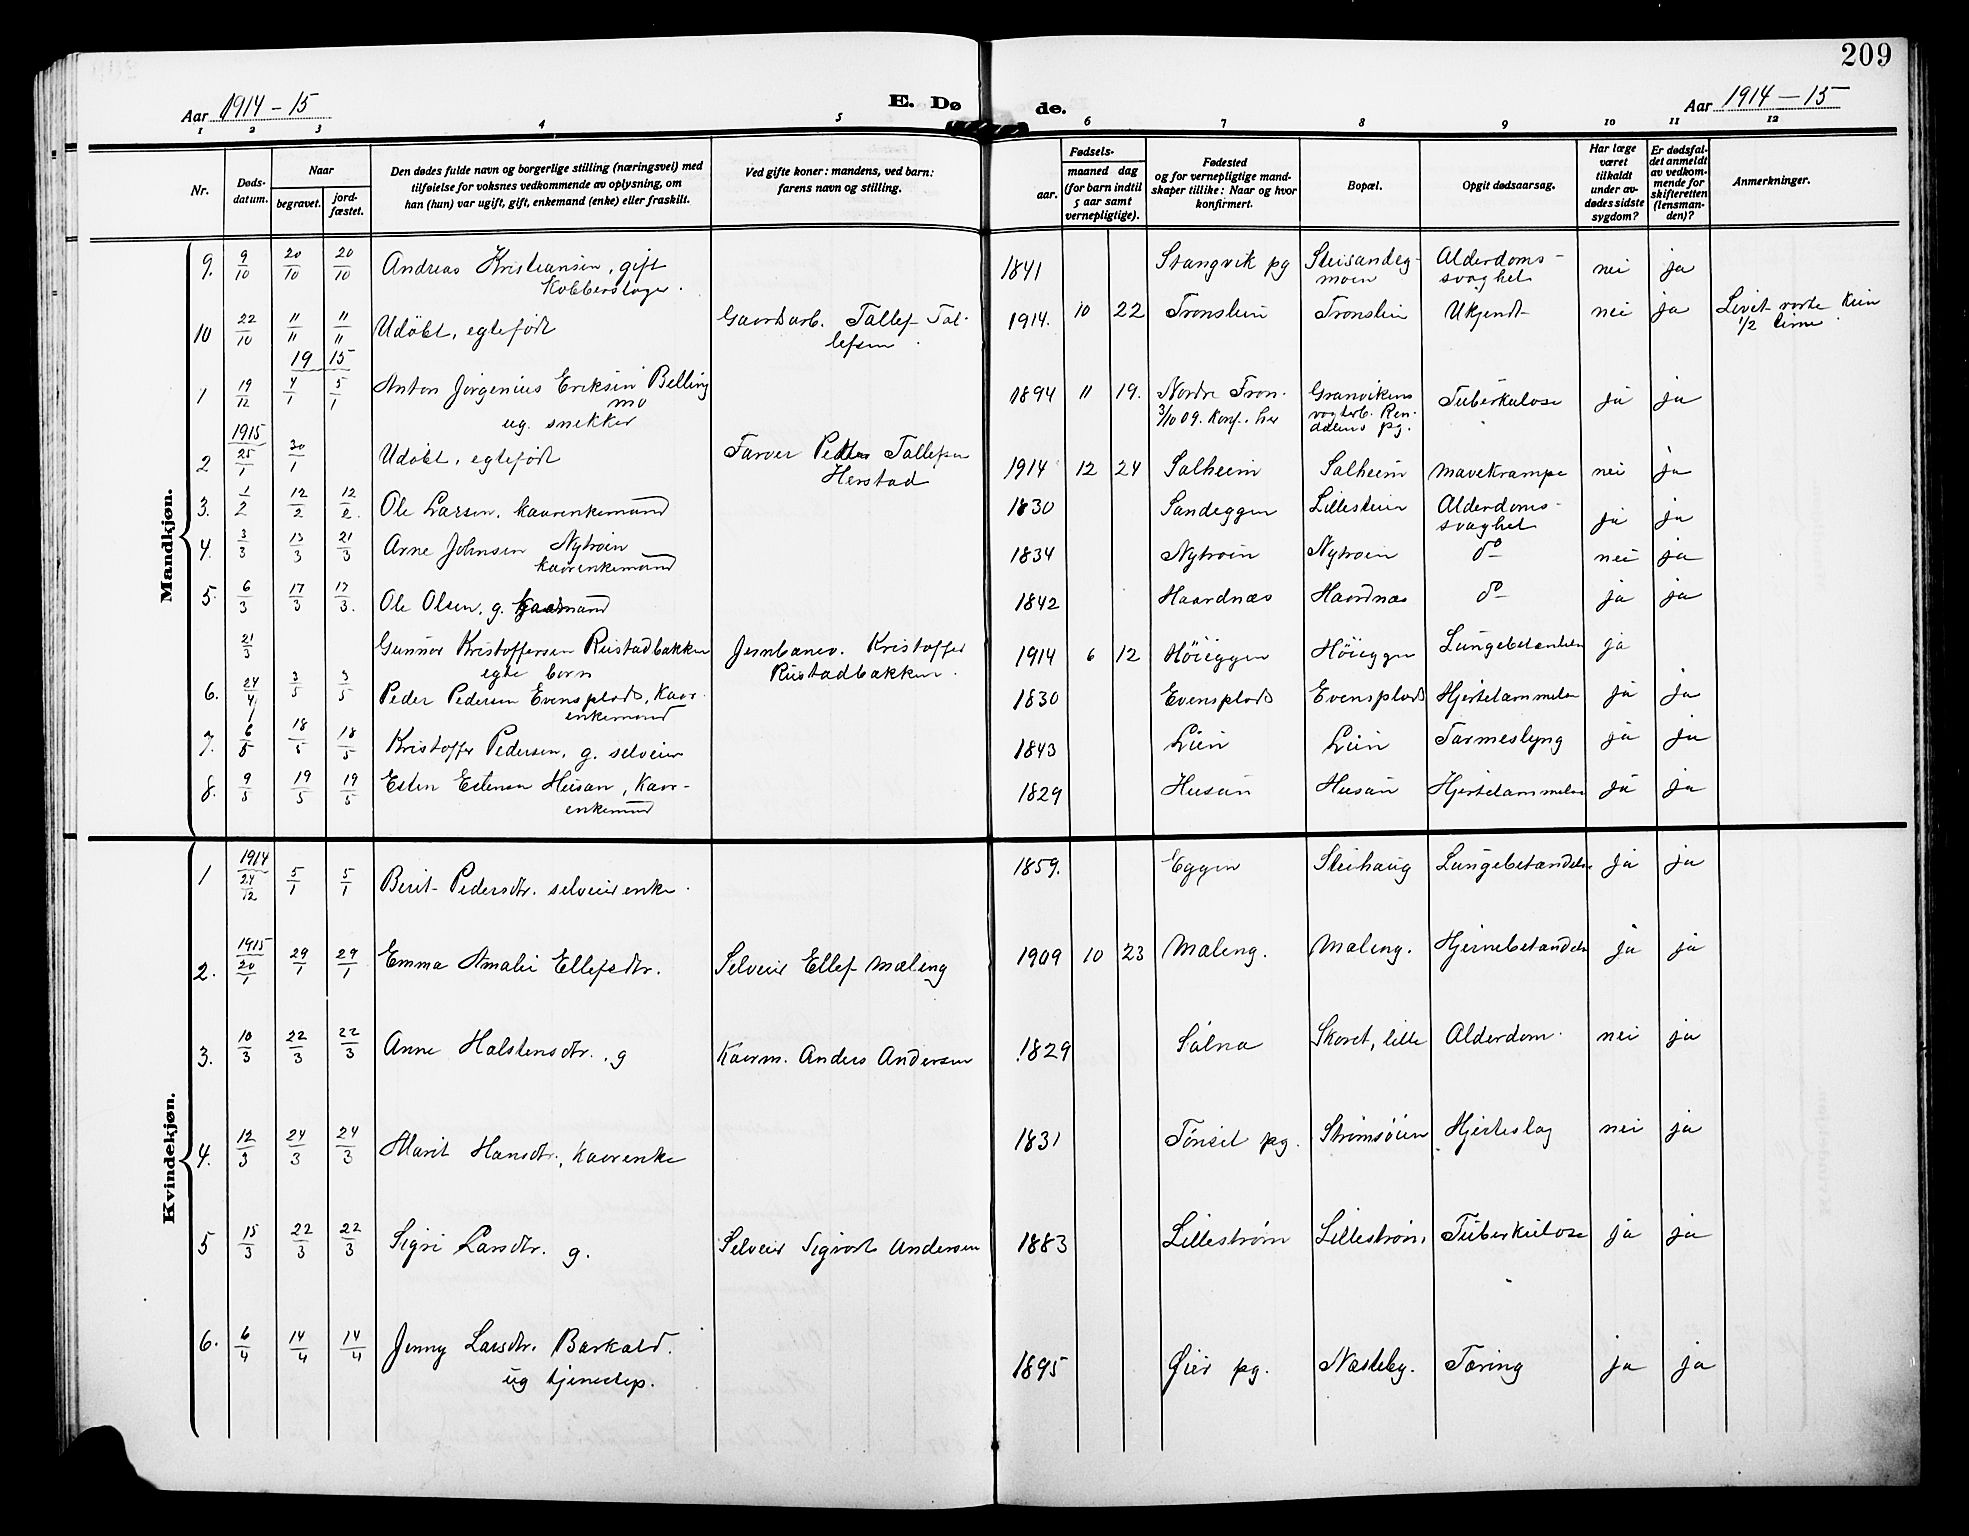 209
Aar 1914-15
E. Dø
de.
Aar 1914-15
1 2 3 4 5 6 7 8 9 10 11 12
Nr.
Døds-
datum.
Naar
begravet.
jord-
fæstet.
Den dødes fulde navn og borgerlige stilling (næringsvei) med
tilføielse for voksnes vedkommende av oplysning, om
han (hun) var ugift, gift, enkemand (enke) eller fraskilt.
Ved gifte koner: mandens, ved barn:
farens navn og stilling.
Fødsels-
aar.
maaned dag
(for barn indtil
5 aar samt
vernepligtige).
Fødested
og for vernepligtige mand-
skaper tillike: Naar og hvor
konfirmert.
Bopæl.
Opgit dødsaarsag.
Har læge
været
tilkaldt
under av-
dødes sidste
sygdom?
Er dødsfal-
det anmeldt
av vedkom-
mende for
skifteretten
(lensman-
den)?
Anmerkninger.
Mandkjøn.
9. 9/10 20/10 20/10 Andreas Kristiansen, gift 1841 Stangvik pg Steisandeg- Alderdoms- nei ja
Kobberslager. moen svaghet
10 22/10 11/11 11/11 Udöbt, egtefödt Gaardarb. Tallef Tal- 1914. 10 22 Tronslien Tronslien Ukjendt nei ja Livet varte kun
lefsen. 1/2 time.
1915
1 19/12 4/1 5/1 Anton Jörgenius Eriksen Belling 1894 11 19. Nordre Tron. Granvikens Tuberkulose ja ja
mo 3/10 09. Konf. her vogterb. Ren-
ug. snekker dalens pg.
1915
2 25/1 30/1 Udöbt, egtefödt Farver Peder Tallefsen 1914 12 24 Salheim Salheim mavekrampe nei ja
Herstad
3. 1/2 12/2 12/2. Ole Larsen, kaarenkemand 1830 Sandeggen Lillesteien Alderdoms- ja ja
svaghet
4. 3/3 13/3 21/3 Arne Johnsen Nytroen 1834 Nytroen Nytroen do nei ja
kaarenkemand
5. 6/3 17/3 17/3. Ole Olsen, g. kaarmand 1842 Haardnæs Haardnæs do ja ja
21/3 Gunnar Kristoffersen Rustadbakken Jernbanev. Kristoffer 1914 6 12 Höieggen Höieggen Lungebetændelse ja
egte barn Rustadbakken.
6. 24/4 3/5 3/5 Peder Pedersen Evensplads, Kaar- 1830 Evensplads Evensplads Hjertelammelse ja ja
enkemand
7. 6/5 18/5 18/5 Kristoffer Pedersen, g. selveier 1843 Lien Lien Tarmeslyng ja ja
8. 9/5 19/5 19/5 Esten Estensen Husan, Kaar- 1829 Husan Husan Hjertelammelse ja ja
enkemand
Kvindekjøn.
1914
1 24/12 5/1 5/1 Berit Pedersdtr. selveierenke. 1859. Eggen Steihaug Lungebetændelse ja ja
1915
2. 20/1 29/1 29/1 Emma Amalie Ellefsdtr. Selveier Ellef Mæleng 1909 10 23 Mæleng. Mæleng. Hjernebetændelse ja ja
3. 10/3 22/3 22/3 Anne Halstensdtr., g Kaarm. Anders Andersen 1829 Sølna Skoret, lille Alderdom. nei ja
4. 12/3 24/3 24/3 Marit Hansdtr., Kaarenke 1831 Tönset pg. Strömsöien Hjerteslag nei ja
5 15/3 22/3 22/3 Sigri Larsdtr. g. Selveier Sigvart Andersen 1883 Lilleström Lilleström Tuberkulose ja ja
6. 6/4 14/4 14/4 Jenny Larsdtr. Barkald. 1895 Øier pg. Næsteby. Tæring ja ja
ug tjenestep.